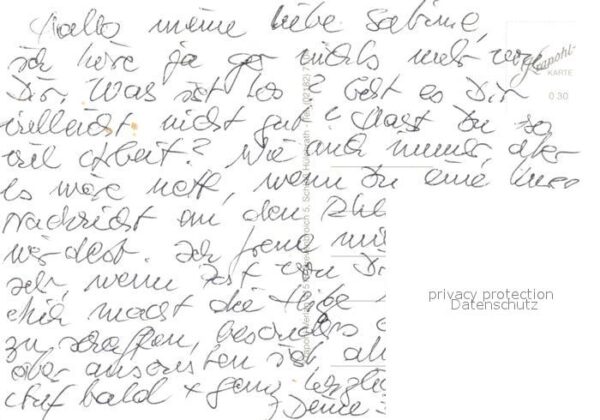 Hallo meine liebe Sabine,
ich höre ja gar nichts mehr von
Dir. Was ist los? Geht es Dir
vielleicht nicht gut? Hast Du so
viel Arbeit? Wie auch immer, aber
es wäre nett, wenn Du eine kurze
Nachricht an den
würdest. Ich freue mi
sehr, wenn ich von Di
mich macht die Hitze
zu schaffen, besonders
aber ansonsten ist al
Auf bald + ganz herzli
Deine
Krapohl-
KARTE
0 30
privacy protection
Datenschutz